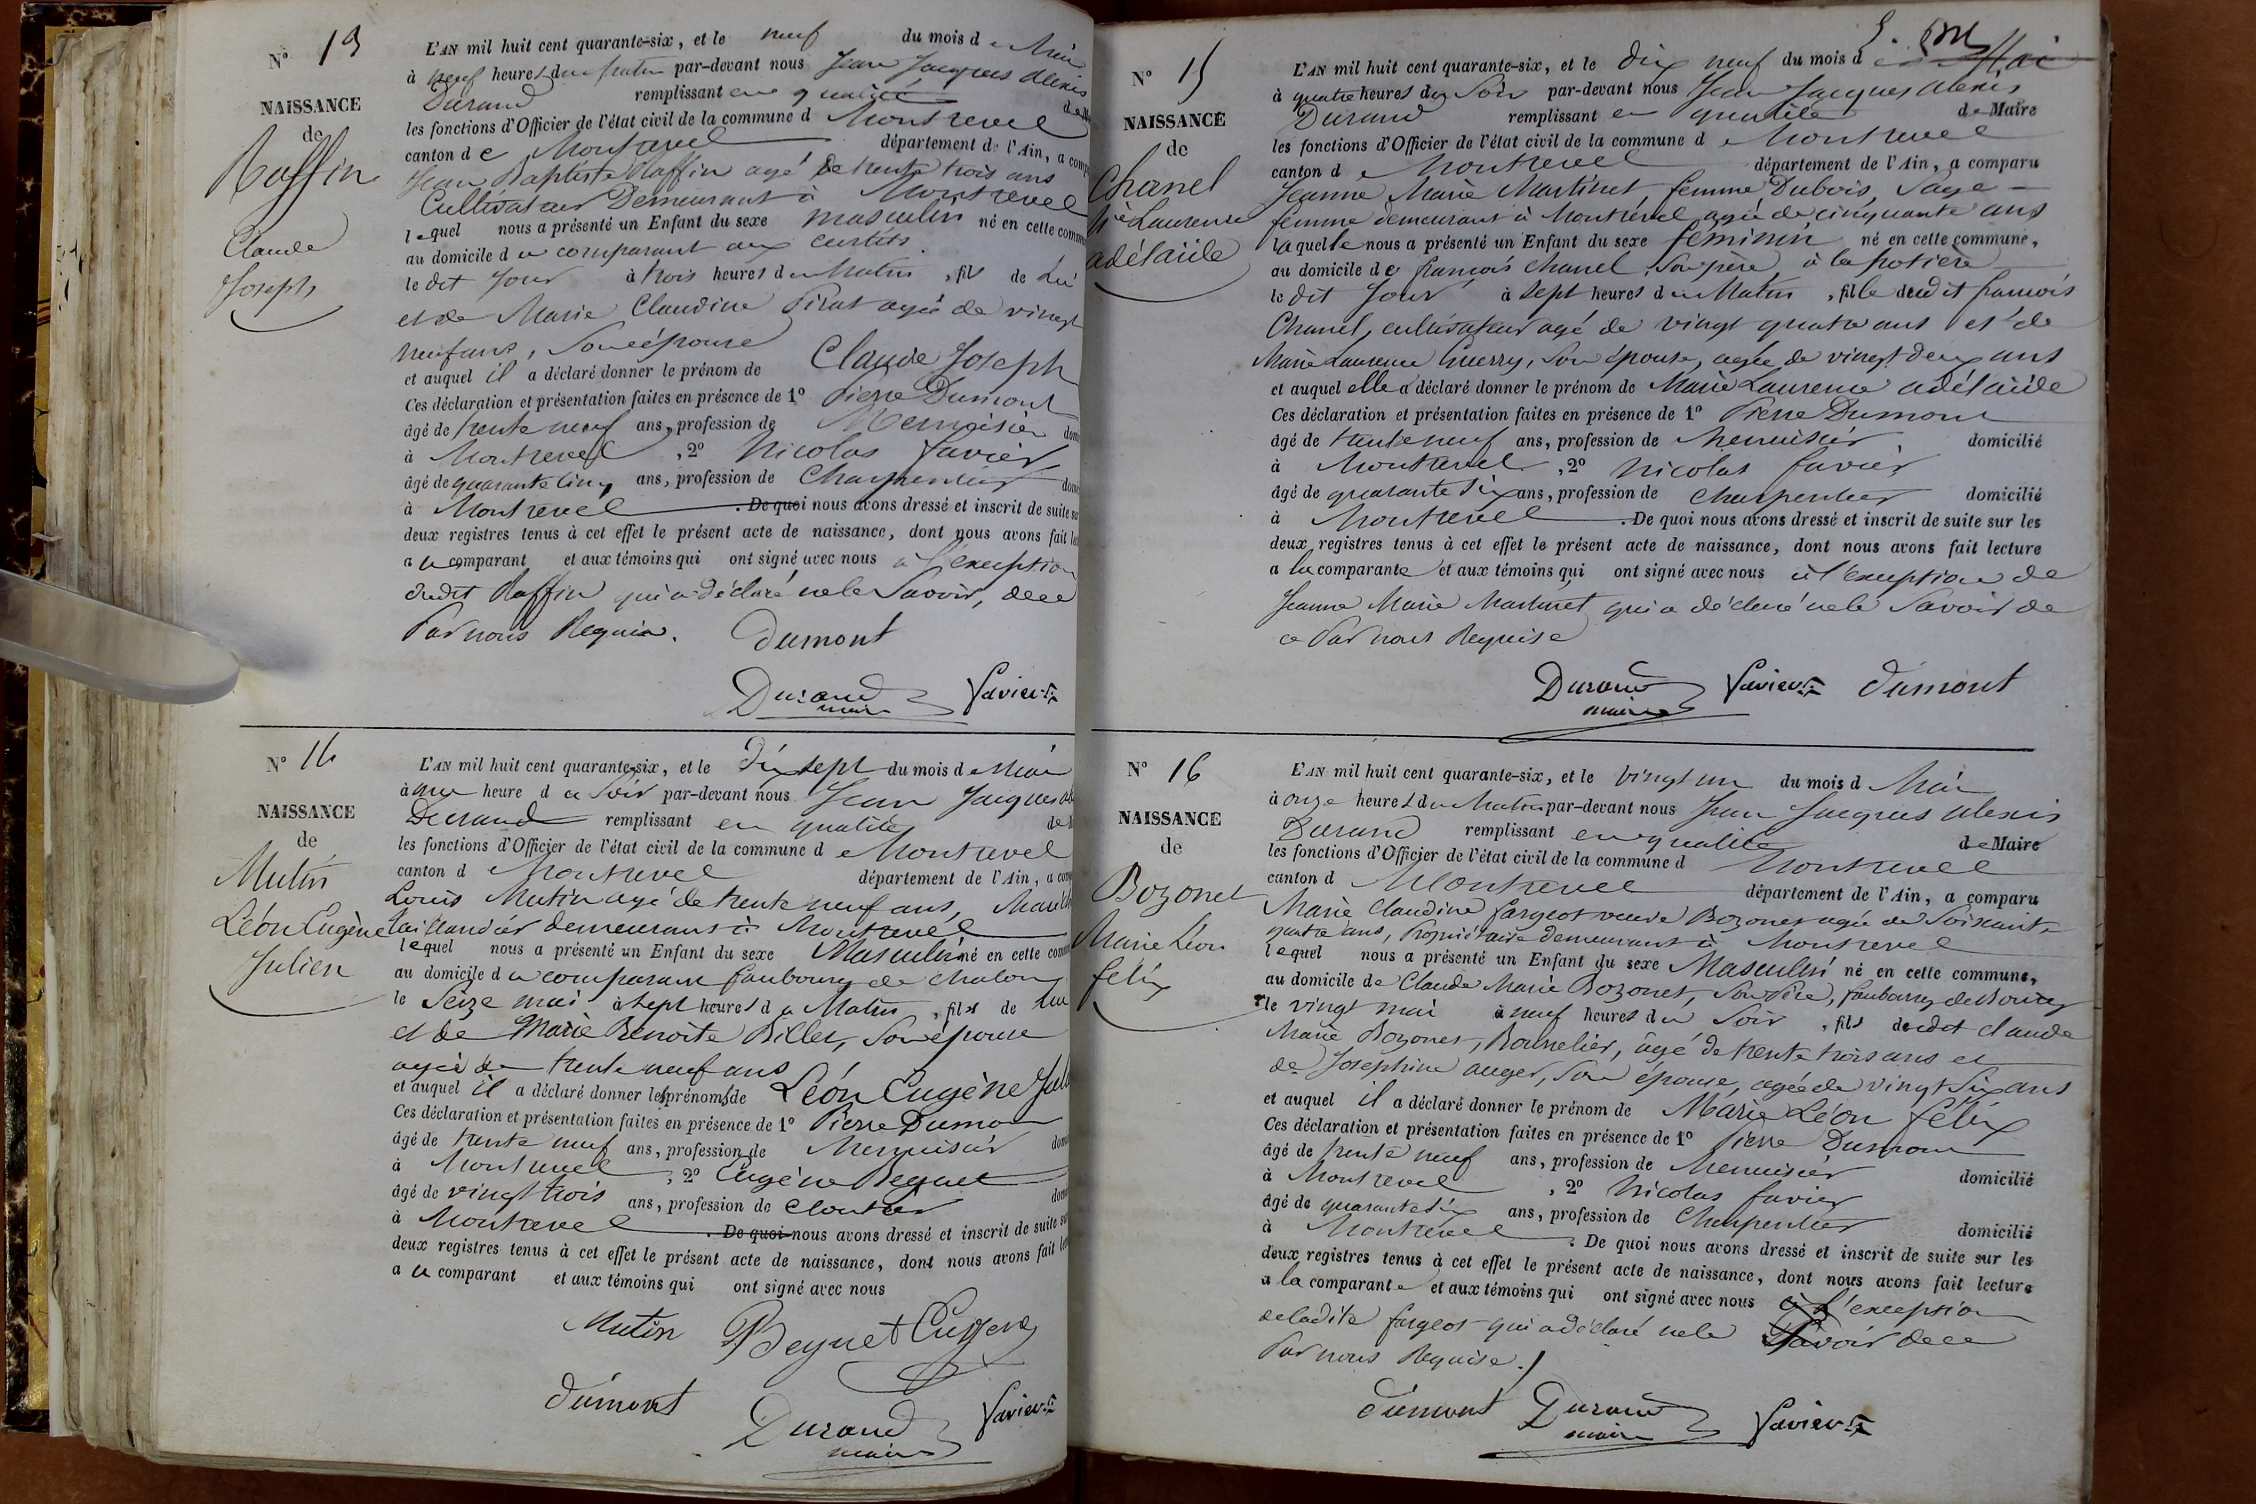 N° 13
NAISSANCE
de
Raffin
Claude
Joseph
L'AN mil huit cent quarante-six, et le neuf du mois de Mai
à neuf heures du matin par-devant nous Jean Jacques Alexis
Durand remplissant en qualité de
les fonctions d'Officier de l'état civil de la commune d Montrevel
canton de Montrevel département de l'Ain, a comp
Jean Baptiste Raffin agé de trente trois ans
Cultivateur Demeurant à Montrevel
lequel nous a présenté un Enfant du sexe masculin né en cette comm
au domicile du comparant aux curtets
le dit jour à trois heures du Matin, fils de lui
et de Marie Claudine Pirat agée de vingt
neuf ans, Son épouse
et auquel il a déclaré donner le prénom de Claude Joseph
Ces déclaration et présentation faites en présence de 1° Pierre Dumont
âgé de trente neuf ans, profession de Menuisier dom
à Montrevel, 2° Nicolas favier
âgé de quarante cinq ans, profession de Charpentier dom
à Montrevel. De quoi nous avons dressé et inscrit de suite su
deux registres tenus à cet effet le présent acte de naissance, dont nous avons fait lec
au comparant et aux témoins qui ont signé avec nous à l'exception
dudit Raffin qui a déclaré ne le Savoir, de ce
Par nous Requis. dumont
Durand maire favier
N° 14
NAISSANCE
de
Mutin
Léon Eugène
Julien
L'AN mil huit cent quarante-six, et le dix sept du mois de Mai
à une heure du Soir par-devant nous Jean Jacques
Durand remplissant en qualité de
les fonctions d'Officier de l'état civil de la commune de Montrevel
canton de Montrevel département de l'Ain, a comp
Louis Mutin agé de trente neuf ans,
taillandier demeurant à Montrevel
lequel nous a présenté un Enfant du sexe Masculin né en cette comm
au domicile du comparant faubourg de chalon
le Seize mai à sept heures du Matin, fils de lui
et de Marie Benoîte Billet, Son épouse
agée de trente neuf ans
et auquel il a déclaré donner les prénoms de Léon Eugène Jul
Ces déclaration et présentation faites en présence de 1° Pierre Dumont
âgé de trente neuf ans, profession de Menuisier dom
à Montrevel, 2° Eugène Beguet
âgé de vingt trois ans, profession de Cloutier dom
à Montrevel. De quoi nous avons dressé et inscrit de suite su
deux registres tenus à cet effet le présent acte de naissance, dont nous avons fait lec
au comparant et aux témoins qui ont signé avec nous
Mutin Beguet Eugene
dumont Durand maire favier
N° 15
NAISSANCE
de
Chanel
Mie Laurence
adélaïde
L'AN mil huit cent quarante-six, et le dix neuf du mois de Mai
à quatre heures du Soir par-devant nous Jean Jacques Alexis
Durand remplissant en qualité de Maire
les fonctions d'Officier de l'état civil de la commune de Montrevel
canton de Montrevel département de l'Ain, a comparu
Jeanne Marie Martinet femme Dubois, Sage-
femme demeurant à Montrevel agée de cinquante ans
laquelle nous a présenté un Enfant du sexe féminin né en cette commune,
au domicile de françois chanel, Son père, à la potière
le dit jour à sept heures du Matin, fille dudit françois
Chanel, cultivateur agé de vingt quatre ans et de
Marie Laurence Guerry, Son épouse, agée de vingt deux ans
et auquel elle a déclaré donner le prénom de Marie Laurence adélaïde
Ces déclaration et présentation faites en présence de 1° Pierre Dumont
âgé de trente neuf ans, profession de Menuisier, domicilié
à Montrevel, 2° Nicolas favier
âgé de quarante six ans, profession de Charpentier domicilié
à Montrevel. De quoi nous avons dressé et inscrit de suite sur les
deux registres tenus à cet effet le présent acte de naissance, dont nous avons fait lecture
a la comparante et aux témoins qui ont signé avec nous à l'exception de
Jeanne Marie Martinet qui a déclaré ne le Savoir de
ce Par nous Requise
Durand maire favier dumont
N° 16
NAISSANCE
de
Bozonet
Marie Léon
félix
L'AN mil huit cent quarante-six, et le vingt un du mois d Mai
à onze heures du Matin par-devant nous Jean Jacques Alexis
Durand remplissant en qualité de Maire
les fonctions d'Officier de l'état civil de la commune d Montrevel
canton d Montrevel département de l'Ain, a comparu
Marie Claudine fargeot veuve Bozonet agée de Soixante
quatre ans, Propriétaire demeurant à Montrevel
lequel nous a présenté un Enfant du sexe Masculin né en cette commune,
au domicile de Claude Marie Bozonet, Son Père, faubourg de Bourg
le vingt mai à neuf heures du Soir, fils dudit claude
Marie Bozonet, Bourrelier, agé de trente trois ans et
de Josephine auger, Son épouse, agée de vingt Six ans
et auquel il a déclaré donner le prénom de Marie Léon félix
Ces déclaration et présentation faites en présence de 1° Pierre Dumont
âgé de trente neuf ans, profession de Menuisier domicilié
à Montrevel, 2° Nicolas favier
âgé de quarante six ans, profession de Charpentier domicilié
à Montrevel. De quoi nous avons dressé et inscrit de suite sur les
deux registres tenus à cet effet le présent acte de naissance, dont nous avons fait lecture
a la comparante et aux témoins qui ont signé avec nous à l'exception
de ladite fargeot qui a déclaré ne le Savoir de ce
Par nous Requise.
dumont Durand maire favier